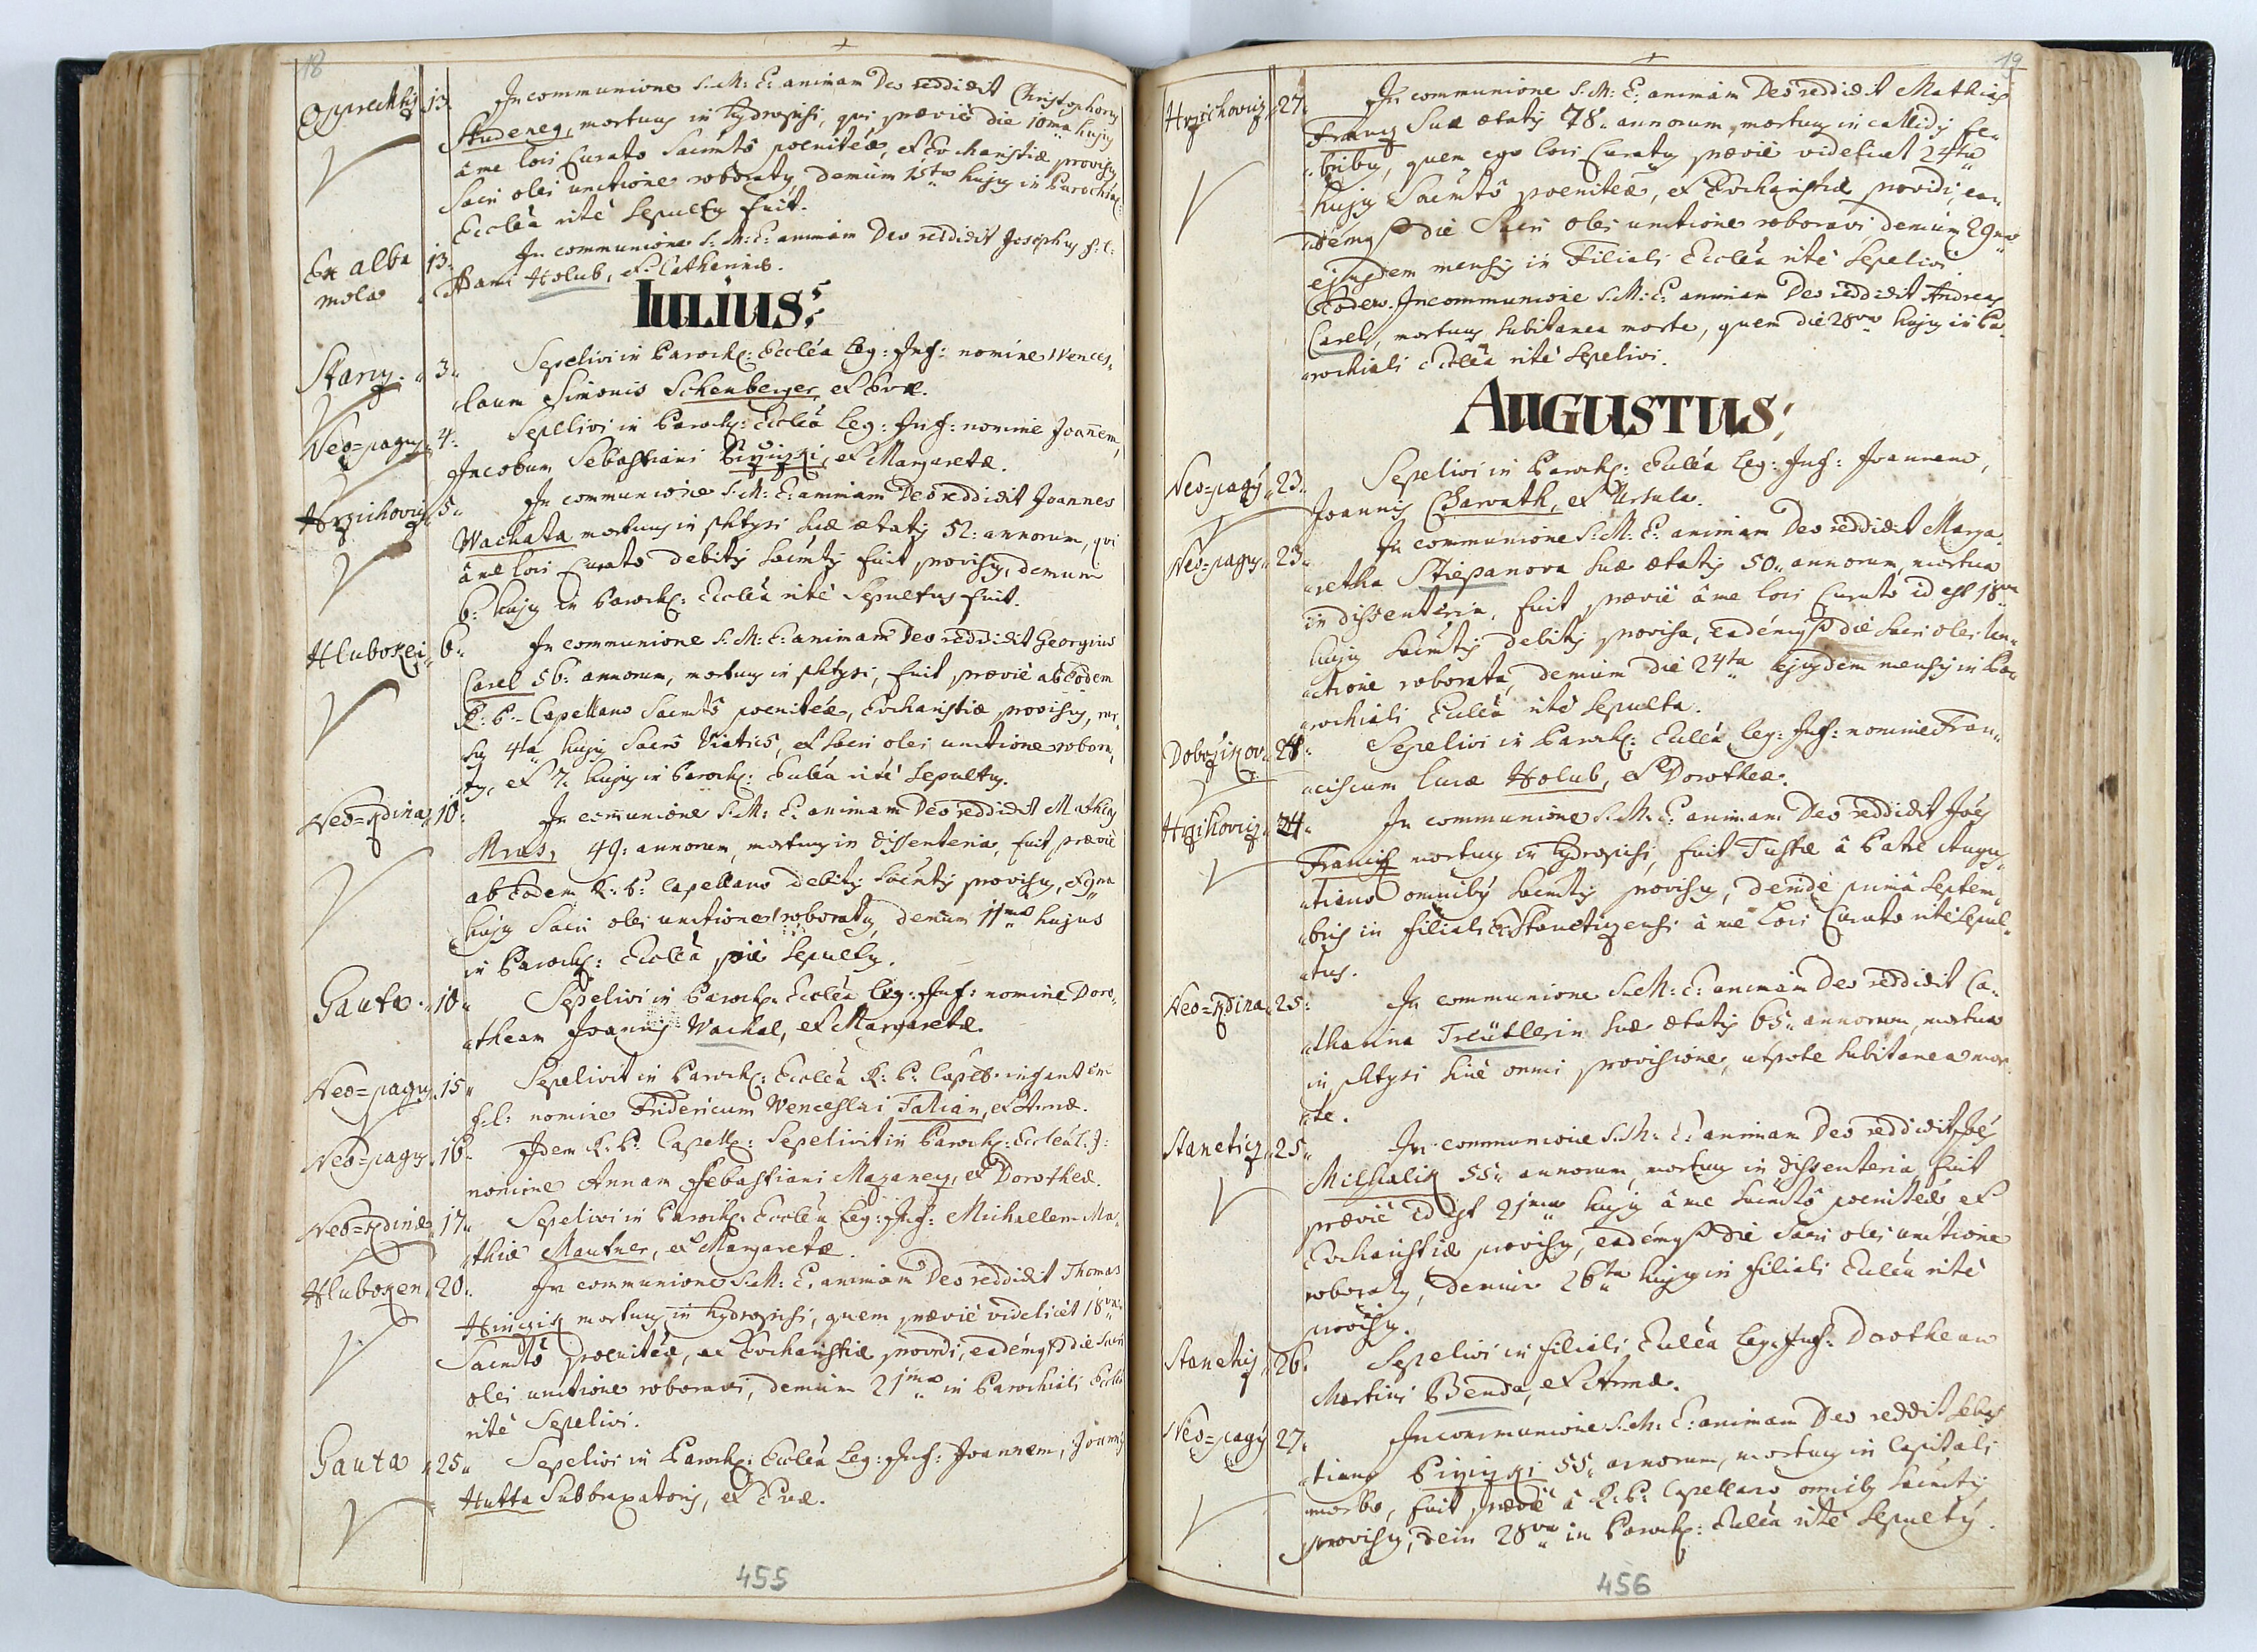 18
Opprechtig 13. In communione S: M: E: animam Deo reddidit Christophorg
Studeneg, mortug in hydropisi, qui praevie die 10ma hujg
â me loci Curato Sacmto poeniteae, et Eucharistiae provisg
Sacri olei unctione roboratg demum 15ta hujg in Parochiali
Ecclea rite Sepultg fuit.
Ex alba 13. In communione S: M: E: animam Deo reddidit Josephg f: l:
mola Adami Holub, et Catharinae.
IULIUS;
Starg. 3. Sepelivi in Paroch: Ecclea Leg: Inf: nomine Wences,,
laum Simonis Schenberger, et Evae.
Neo=pagg 4. Sepelivi in Paroch: Ecclea Leg: Inf: nomine Joannem,
Jacobum Sebastiani, et Margaretae.
Hrzichovig 5. In communione S: M: E: animam Deo reddidit Joannes
Wachata mortug in phtysi suae aetatis 52: annorum, qui
â me loci Curato debitis Sacmtis fuit provisg, demum
6. hujg in Paroch: Ecclea rite Sepultus fuit.
Hlubokei 6. In communione S: M: E: animam Deo reddidit Georgius
Carel 56: annorum, mortug in phtysi, fuit praevie ab Eodem
R: P: Capellano Sacmto poeniteae, Eucharistiae provisg, rur,,
sg 4ta hujg Sacro Viatico, et Sacri olei unctione robora,,
tg, et 7. hujg in Paroch: Ecclea rite Sepultg.
Neo=Rdina 10. In communione S: M: E: animam Deo reddidit Matheg
Mras, 49: annorum, mortug in dissenteria, fuit praevie
ab Eodem R: P: Capellano debitis Sacmtis provisg, et 9na
hujg Sacri olei unctione roboratg, demum 11ma hujus
in Paroch: Ecclea pie Sepultg.
Gauta. 10. Sepelivi in Paroch: Ecclea Leg: Inf: nomine Doro,,
theam Joannis Wachal, et Margaretae.
Neo=pagg 15. Sepelivit in Paroch: Ecclea R: P: Capell: infantem
f: l: nomine Fridericum Wenceslai Falian, et Annae.
Neo=pagg 16. Idem R: P: Capell: Sepelivit in Paroch: Ecclea L: I:
nomine Annam Sebastiani Mazaneg, et Dorotheae.
Neo=Rdinae 17. Sepelivi in Paroch: Ecclea Leg: Inf: Michaelem Ma,,
thiae Mautner, et Margaretae.
Hluboken 20. In communione S: M: E: animam Deo reddidit Thomas
mortug in hydropisi, quem praevie videlicet 18va
Sacmto poeniteae, et Eucharistiae providi, eademq die Sacri
olei unctione roboravi, demum 21ma in Parochiali Ecclea
rite Sepelivi.
Gauta 25. Sepelivi in Paroch: Ecclea Leg: Inf: Joannem, Joannis
Hutta Subbraxatoris, et Evae.
455
19
Hrzichovig 27. In communione S: M: E: animam Deo reddidit Mathias
Frang Suae aetatis 78. annorum, mortug in callidis fe,,
bribg, quem ego loci Curatg praevie videlicet 24ta
hujg Sacmto poeniteae, et Eucharistiae providi, ea,,
demq die Sacri olei unctione roboravi demum 29na
ejusdem mensis in Filiali Ecclea rite Sepelivi
Eodem. In communione S: M: E: animam Deo reddidit Andreas
Carel, mortug subitanea morte, quem die 28va hujg in Pa,,
rochiali Ecclea rite Sepelivi.
AUGUSTUS;
Neo=pagg 23. Sepelivi in Paroch: Ecclea Leg: Inf: Joannem,
Joannis Charvath, et Ursulae.
Neo=pagg 23. In communione S: M: E: animam Deo reddidit Marga,,
retha Stiepanova suae aetatis 50. annorum, mortua
in dissenteria, fuit praevie â me loci Curato id est 18va
hujg Sacmtis debitis provisa, eademq die Sacri olei un,,
ctione roborata, demum die 24ta ejusdem mensis in Pa,,
rochiali Ecclea rite Sepulta.
Dobrzikov 24. Sepelivi in Paroch: Ecclea Leg: Inf: nomine Fran,,
ciscum Lucae Holub, et Dorotheae.
Hrzihovig 24. In communione S: M: E: animam Deo reddidit Joes
mortug in hydropisi, fuit Tustae â Patre Augus,,
tiano omnibg Sacmtis provisg, deinde prima Septem,,
bris in filiali Stanetizensi â me loci Curato rite Sepul,,
tus.
Neo=Rdina 25. In communione S: M: E: animam Deo reddidit Ca,,
tharina Treütlerin suae aetatis 65. annorum, mortua
in phtysi sine omni provisione, utpote subitanea mor,,
te.
Stanetig 25. In communione S: M: E: animam Deo reddidit Joes
Milhalik 55. annorum, mortug in dissenteria, fuit
praevie id est 21ma hujg â me Sacmto poeniteae et
Eucharistiae provisg, eademq die Sacri olei unctione
roboratg, demum 26ta hujg in filiali Ecclea rite
provisg.
Stanetig 26. Sepelivi in filiali Ecclea Leg: Inf: Dorotheam
Martini Benda, et Annae.
Neo=pagg 27. In communione S: M: E: animam Deo reddidit Sebas
tiang 55. annorum, mortug in Capitali
morbo, fuit praevie â R: P: Capellano omnibg Sacmtis
provisg, dein 28va in Paroch: Ecclea rite Sepultg.
456